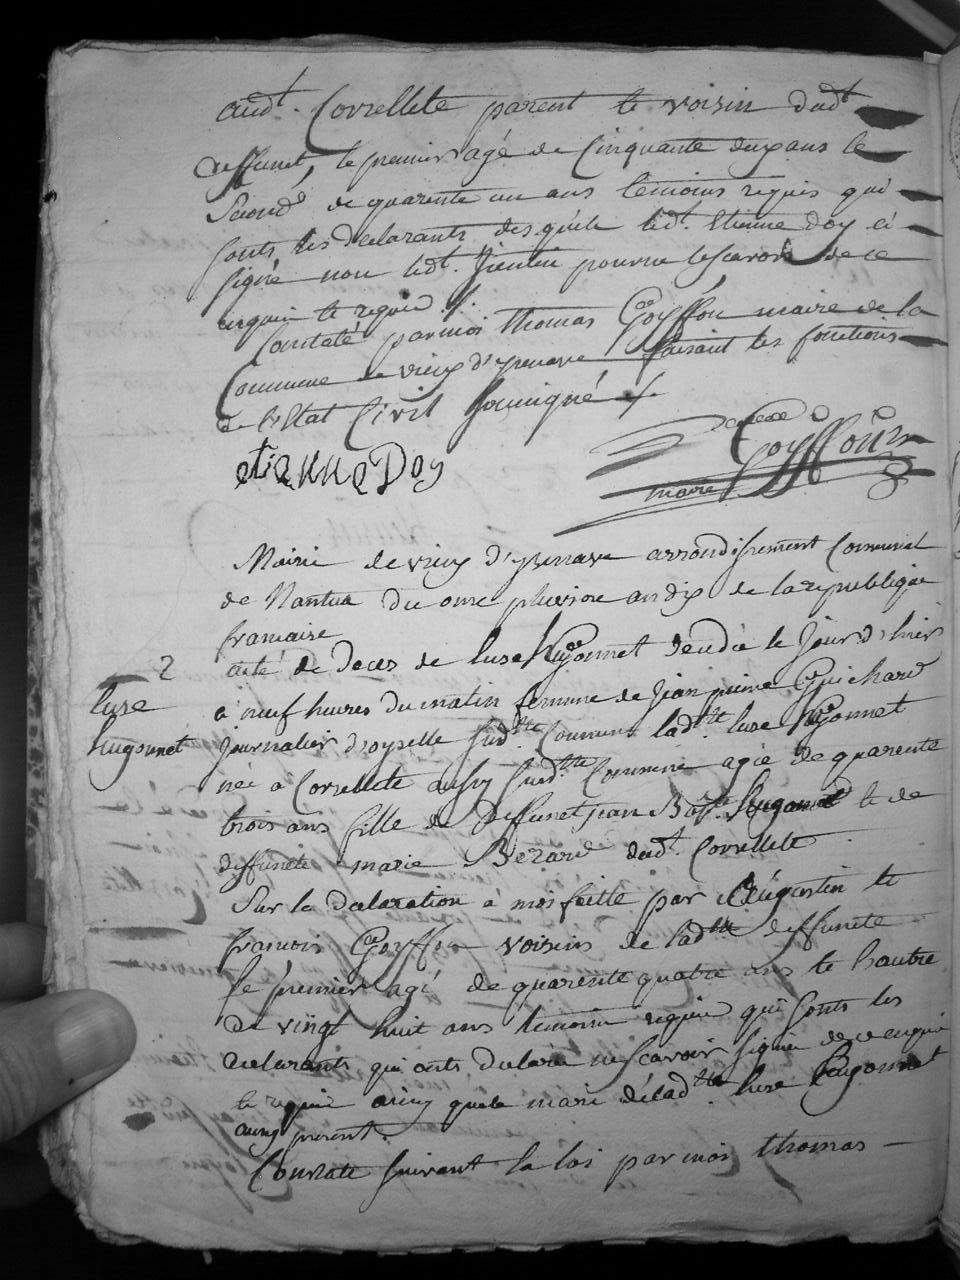 audt. Corcellete parent te voisin dudt
deffunet, le premier agé de Cinquante deux ans le
Second de quarente un ans temoins requis qui
sonts les declarants desquels ledt. Etienne Doy a
signé non ledt. pour ne le scavoir de ce
enquis te requis ./.
Constaté par moi thomas Goÿffon maire de la
Commune de vieux d'yzenave faisant les fonctions
de l'Etat Civil soussigné ./.
etiennne Doy
Goyffon
maire
Mairie de vieux d'yzenave arrondissement Communal
de Nantua du onze pluviose an dix de la republique
francaise
2
acte de deces de luse hugonnet decedée le jour d'hier
luse
a neuf heures du matin femme de jean pierre Guichard
hugonnet
journalier d'oyselle susdtte Commune ladtte luse hugonnet
née a Corcellete aussy susdtte Commune agée de quarente
trois ans fille de deffunet jean Bapte hugonnet te de
deffunete marie Bezard dudt. Corcellete
Sur la declaration a moi faitte par augustin te
francois Goyffon voisins de ladtte deffunete
le premier agé de quarente quatre ans te l'autre
de vingt huit ans temoins requis qui sonts les
declarants qui onts declaré ne scavoir signer de ce enquis
te requis ainsy que le mari de ladtte luse hugonnet
aussy present.
Constaté suivant la loi par moi thomas